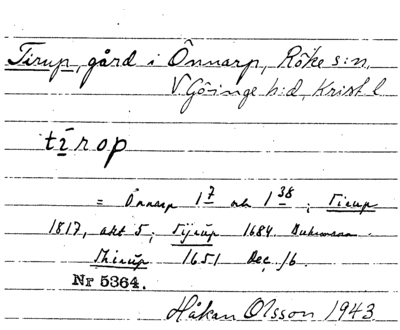 Tirup, gård i Önnarp, Röke s:n.
V. Göinge h:d, Krist l
tírop
= Önnarp 1 7 och 1 38 ; Tirup
1817, akt 5; Tÿrup 1684. Buhrmann.
Thirup 1651 Dec. 16.
Nr 5364.
Håkan Olsson 1943